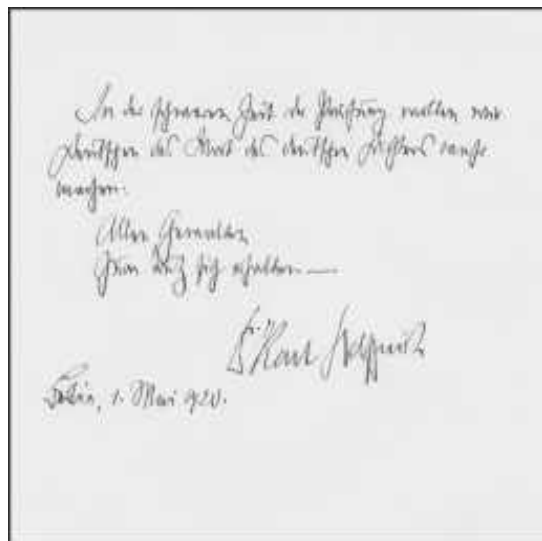 In der schweren Zeit der Prüfung wollen wir
Deutschen das Wort des deutschen Dichters wahr
machen:
Allen Gewalten
Zum Trutz sich erhalten —
Dr. Karl Helfferich
Berlin, 1. Mai 1920.